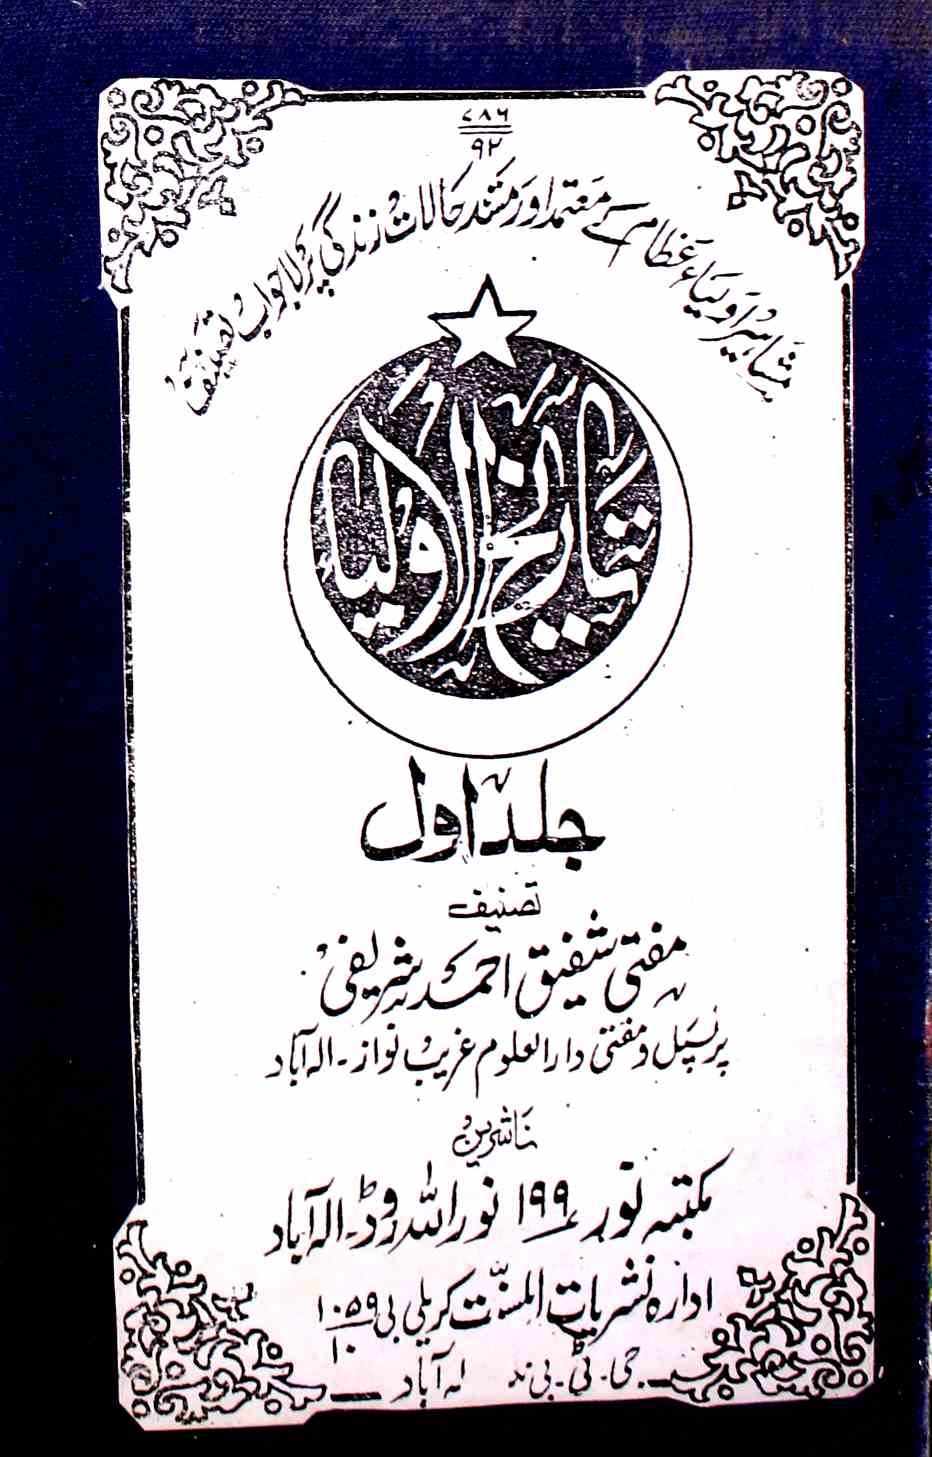 ۷۸۶
۹۲
مشاہیر اولیاء عظام کے معتمد اور مستند حالات زندگی پر لاجواب تصنیف
تاریخ الاولیاء
جلد اول
تصنیف
مفتی شفیق احمد شریفی
پرنسپل و مفتی دارالعلوم غریب نواز۔ الہ آباد
ناشرین
مکتبہ نور ۱۹۹ نوراللہ روڈ۔ الہ آباد
ادارہ نشریات اہلسنّت کریلی بی ۱۰۵۹/۱۰
جی۔ ٹی۔ بی نگر الہ آباد